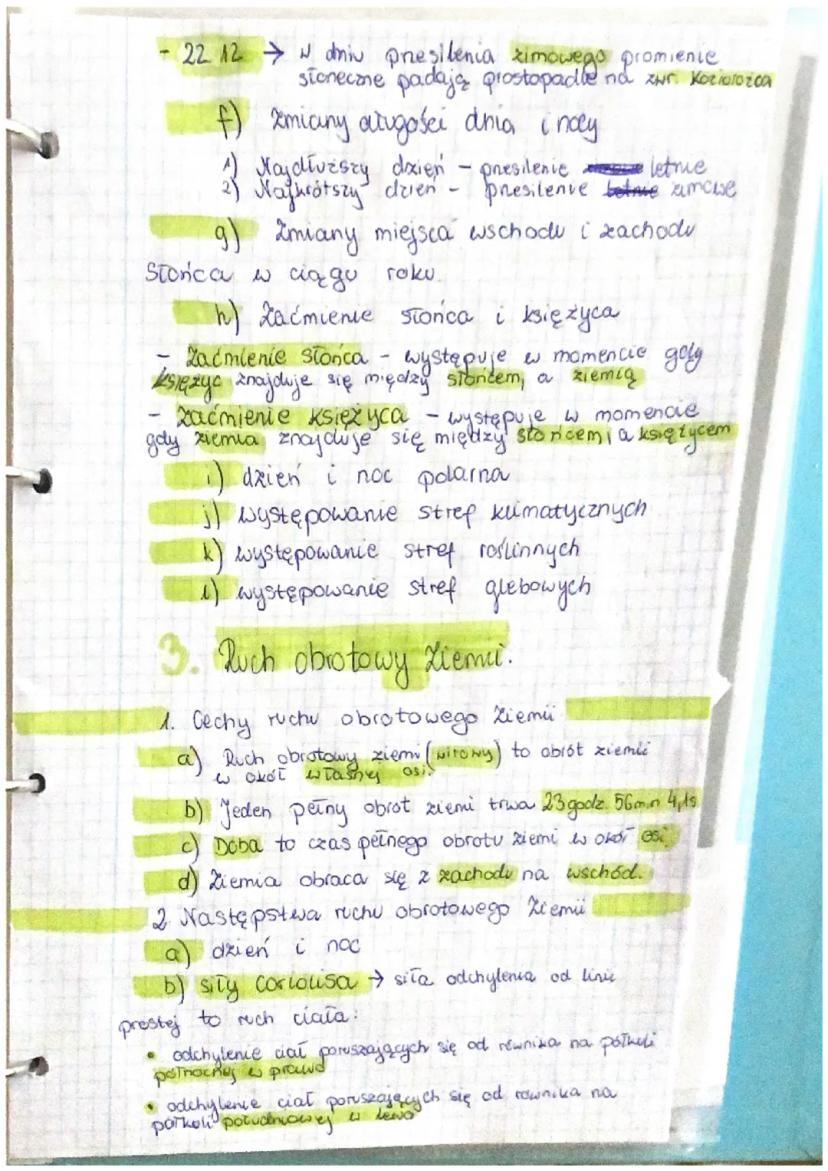 - 22 12 → W dniu przesilenia zimowego promienie
słoneczne padają prostopadle na zwr. Koziorożca
f) Zmiany długości dnia i nocy
1) Najdłuższy dzień - przesilenie letnie
2) Najkrótszy dzień - przesilenie letnie zimowe
g) Zmiany miejsca wschodu i zachodu
Słońca w ciągu roku.
h) Zaćmienie słońca i księżyca
- Zaćmienie Słońca - występuje w momencie gdy
księżyc znajduje się między słońcem, a ziemią
- Zaćmienie księżyca - występuje w momencie
gdy ziemia znajduje się między słońcem, a księżycem
i) dzień i noc polarna
j) występowanie stref klimatycznych
k) występowanie stref roślinnych
l) występowanie stref glebowych
3. Ruch obrotowy Ziemii.
1. Cechy ruchu obrotowego Ziemii
a) Ruch obrotowy ziemi (wirowy) to obrót ziemii
w okół własnej osi.
b) Jeden pełny obrót ziemi trwa 23 godz. 56 min 4,1s
c) Doba to czas pełnego obrotu ziemi w okół osi
d) Ziemia obraca się z zachodu na wschód.
2. Następstwa ruchu obrotowego Ziemii
a) dzień i noc
b) siły Coriolisa → siła odchylenia od linii
prostej to ruch ciała:
• odchylenie ciał poruszających się od równika na półkuli
północnej w prawo
• odchylenie ciał poruszających się od równika na
półkuli południowej w lewo